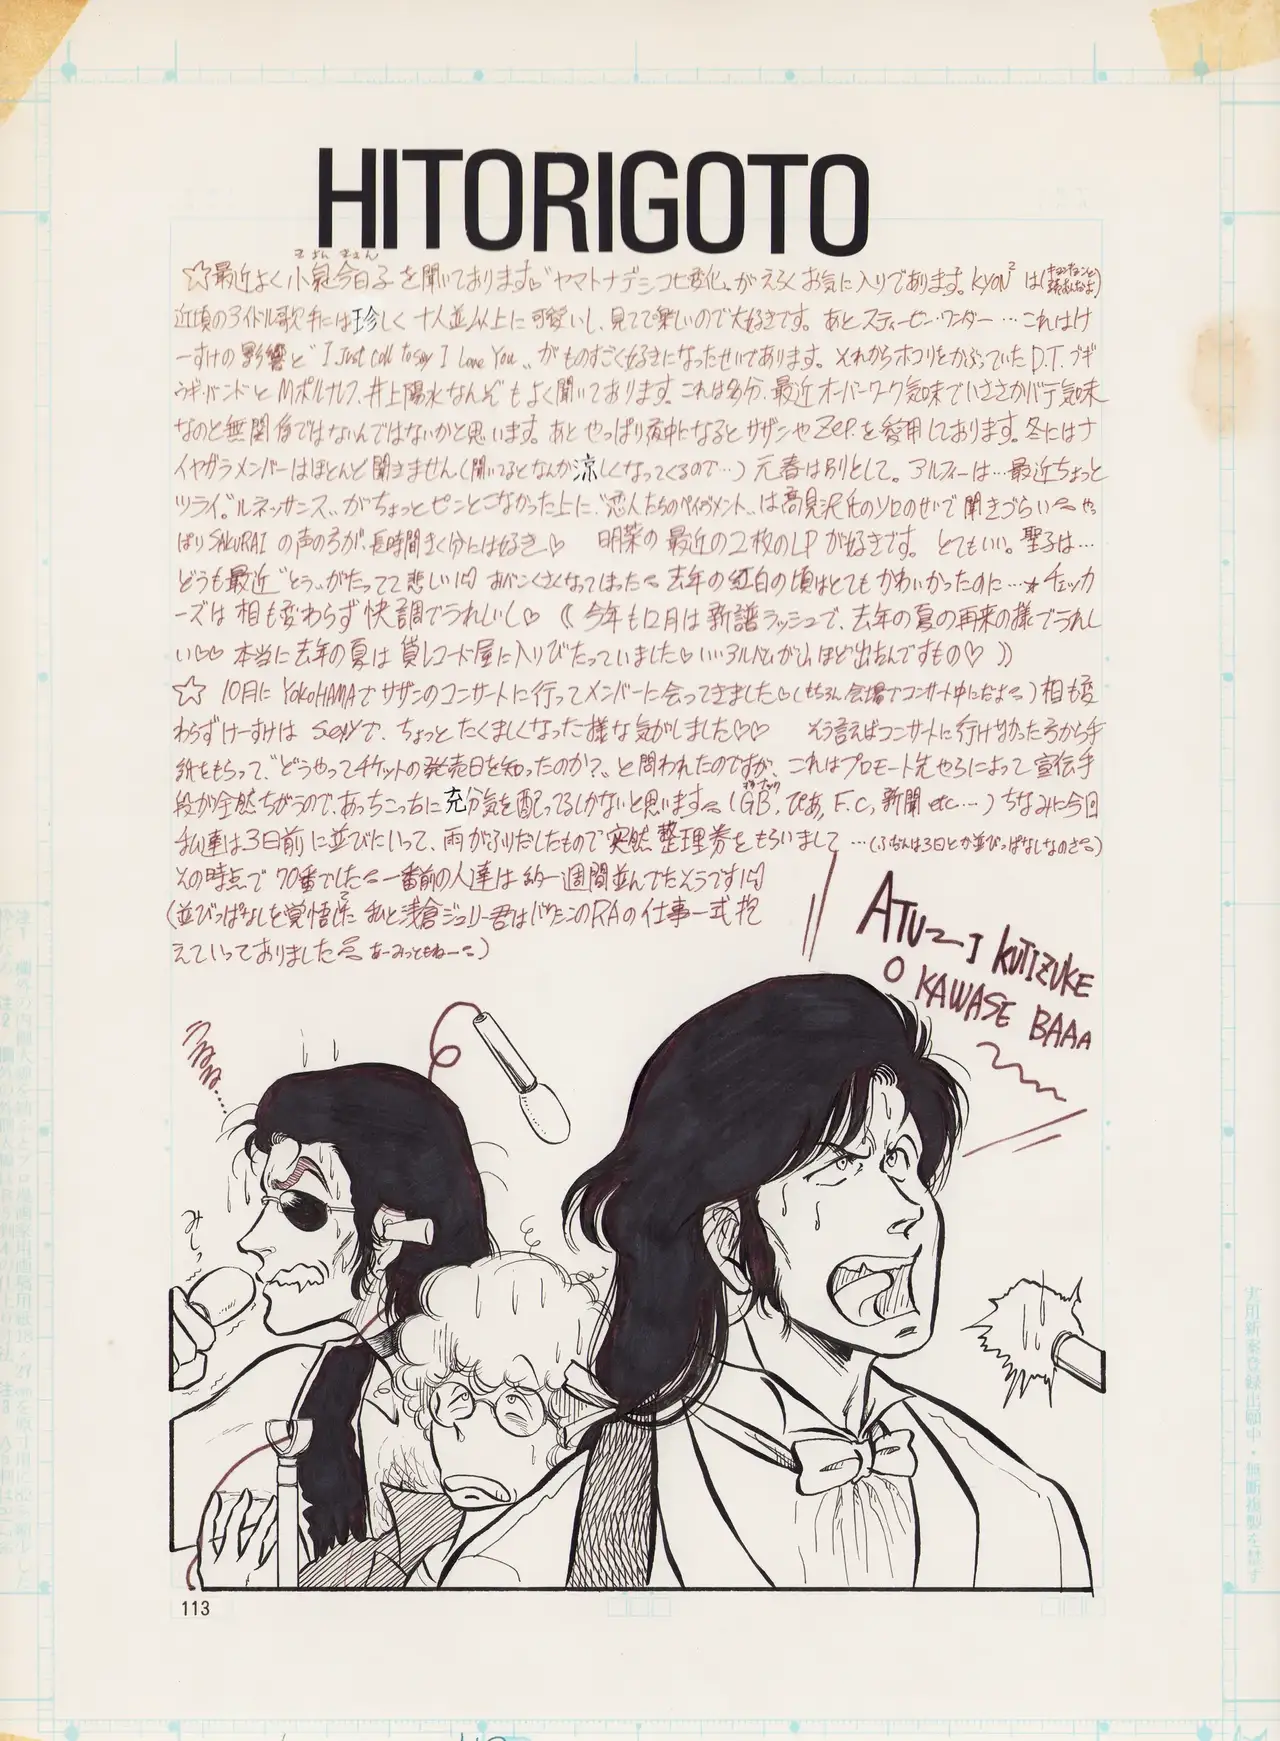 HITORIGOTO
きょんきょん
☆最近よく小泉今日子を聞いております♡“ヤマトナデシコ七変化„がえらくお気に入りであります。KYON²は
近頃のアイドル歌手には珍しく十人並以上に可愛いし、見てて楽しいので大好きです。あとスティービー・ワンダー…これはけ
ーすけの影響と“I Just call to say I Love You„がものすごく好きになったせいであります。それからホコリをかぶっていたD.T.ブギ
ウギ・バンドとMポルナレフ、井上陽水なんぞもよく聞いております。これは多分、最近オーバーワーク気味でいささかバテ気味
なのと無関係ではないんではないかと思います。あとやっぱり夜中になるとサザンやZEP.を愛用しております。冬にはナ
イヤガラメンバーはほとんど聞きません(聞いてるとなんか涼しくなってくるので…)元春は別として。アルフィーは…最近ちょっと
ツライ。“ルネッサンス„がちょっとピンとこなかった上に、“恋人たちのペイヴメント„は高見沢氏のソロのせいで聞きづらい やっ
ぱりSAKURAIの声の方が、長時間きく分には好き♡ 明菜の最近の2枚のLPが好きです。とてもいい。聖子は…
どうも最近“とう„がたってて悲しい おばんくさくなってしまった 去年の紅白の頃はとてもかわいかったのに…★チェッカ
ーズは相も変わらず快調でうれしいし♡《今年も12月は新譜ラッシュで、去年の夏の再来の様でうれし
い♡♡本当に去年の夏は貸レコード屋に入りびたっていました♡いいアルバムが山ほど出たんですもの♡》
☆10月にYOKOHAMAでサザンのコンサートに行ってメンバーに会ってきました♡(もちろん会場でコンサート中にだよ)相も変
わらずけーすけはSexyで、ちょっとたくましくなった様な気がしました♡♡ そう言えばコンサートに行けなかった方から手
紙をもらって、“どうやってチケットの発売日を知ったのか?„と問われたのですが、これはプロモート先やらによって宣伝手
段が全然ちがうので、あっちこっちに充分気を配ってるしかないと思います(GB、ぴあ、F.C.、新聞etc…)ちなみに今回
私達は3日前に並びにいって、雨がふりだしたもので突然整理券をもらいまして…(ふだんは3日とか並びっぱなしなのさ)
その時点で70番でした 一番前の人達は約一週間並んでたそうです
(並びっぱなしを覚悟してた私と浅倉ジュリー君はバウシンのRAの仕事一式抱
えていっておりました あーみっともねー)
ATU〜I KUTIZUKE
O KAWASE BAAA
みしっ
113